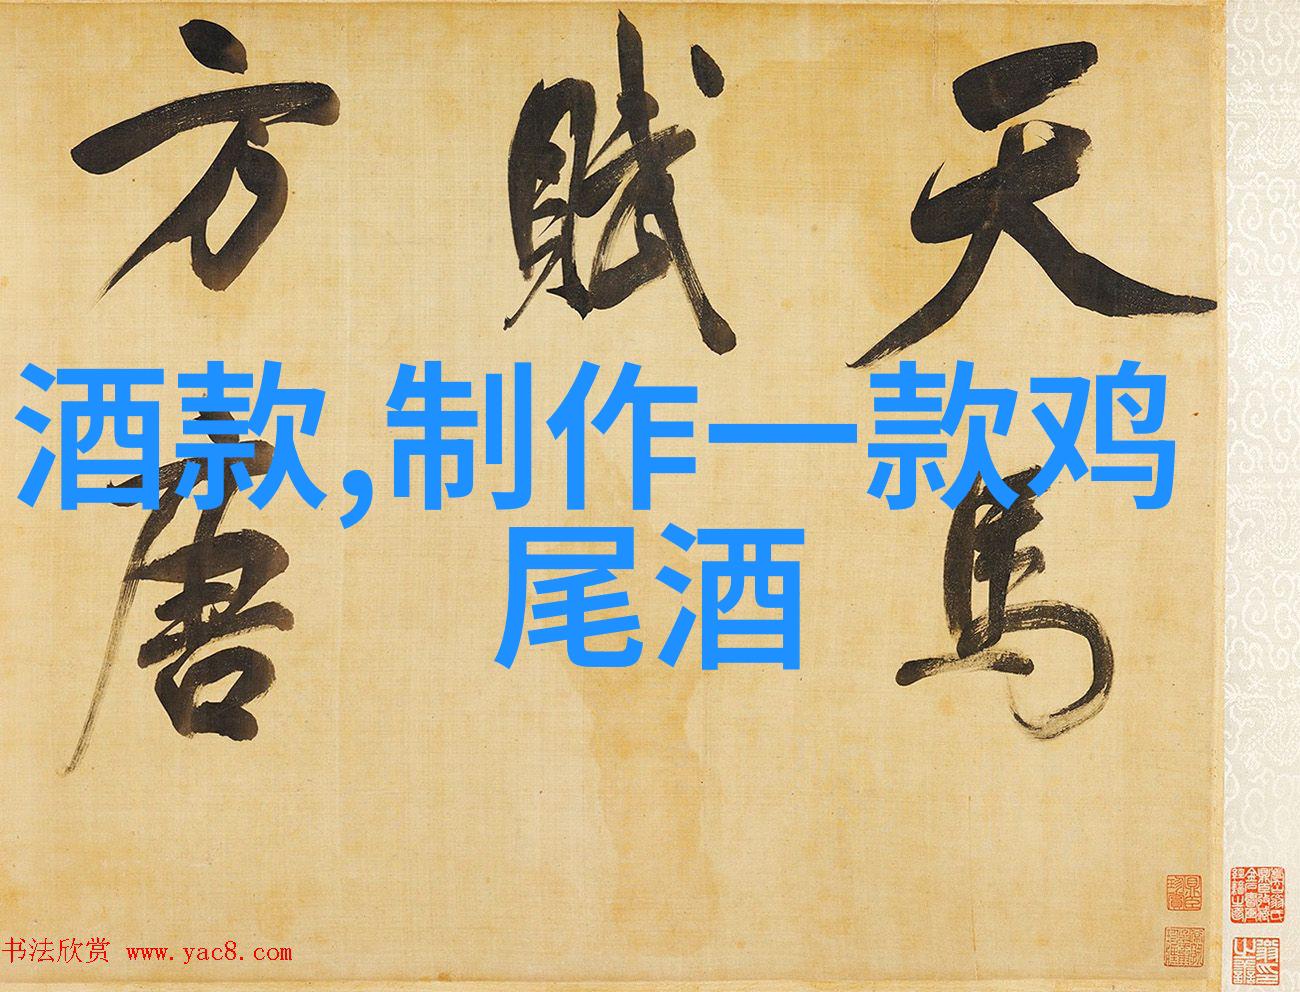 天馬
賦
方唐
酒款,制作一款鸡
尾酒
书法欣赏 www.yac8.com